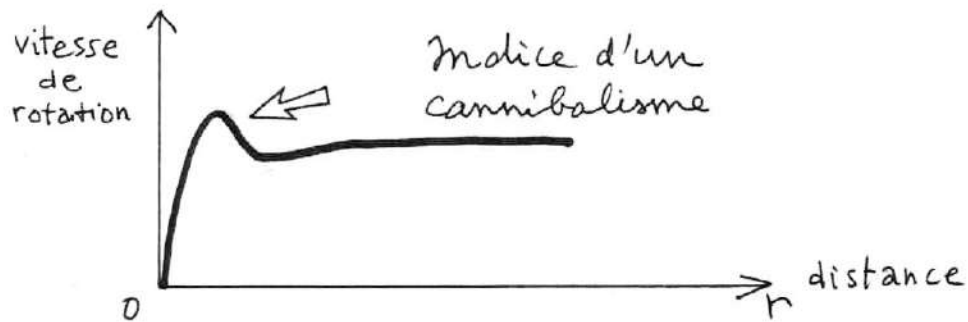 vitesse
de
rotation
Indice d'un
cannibalisme
0
r
distance